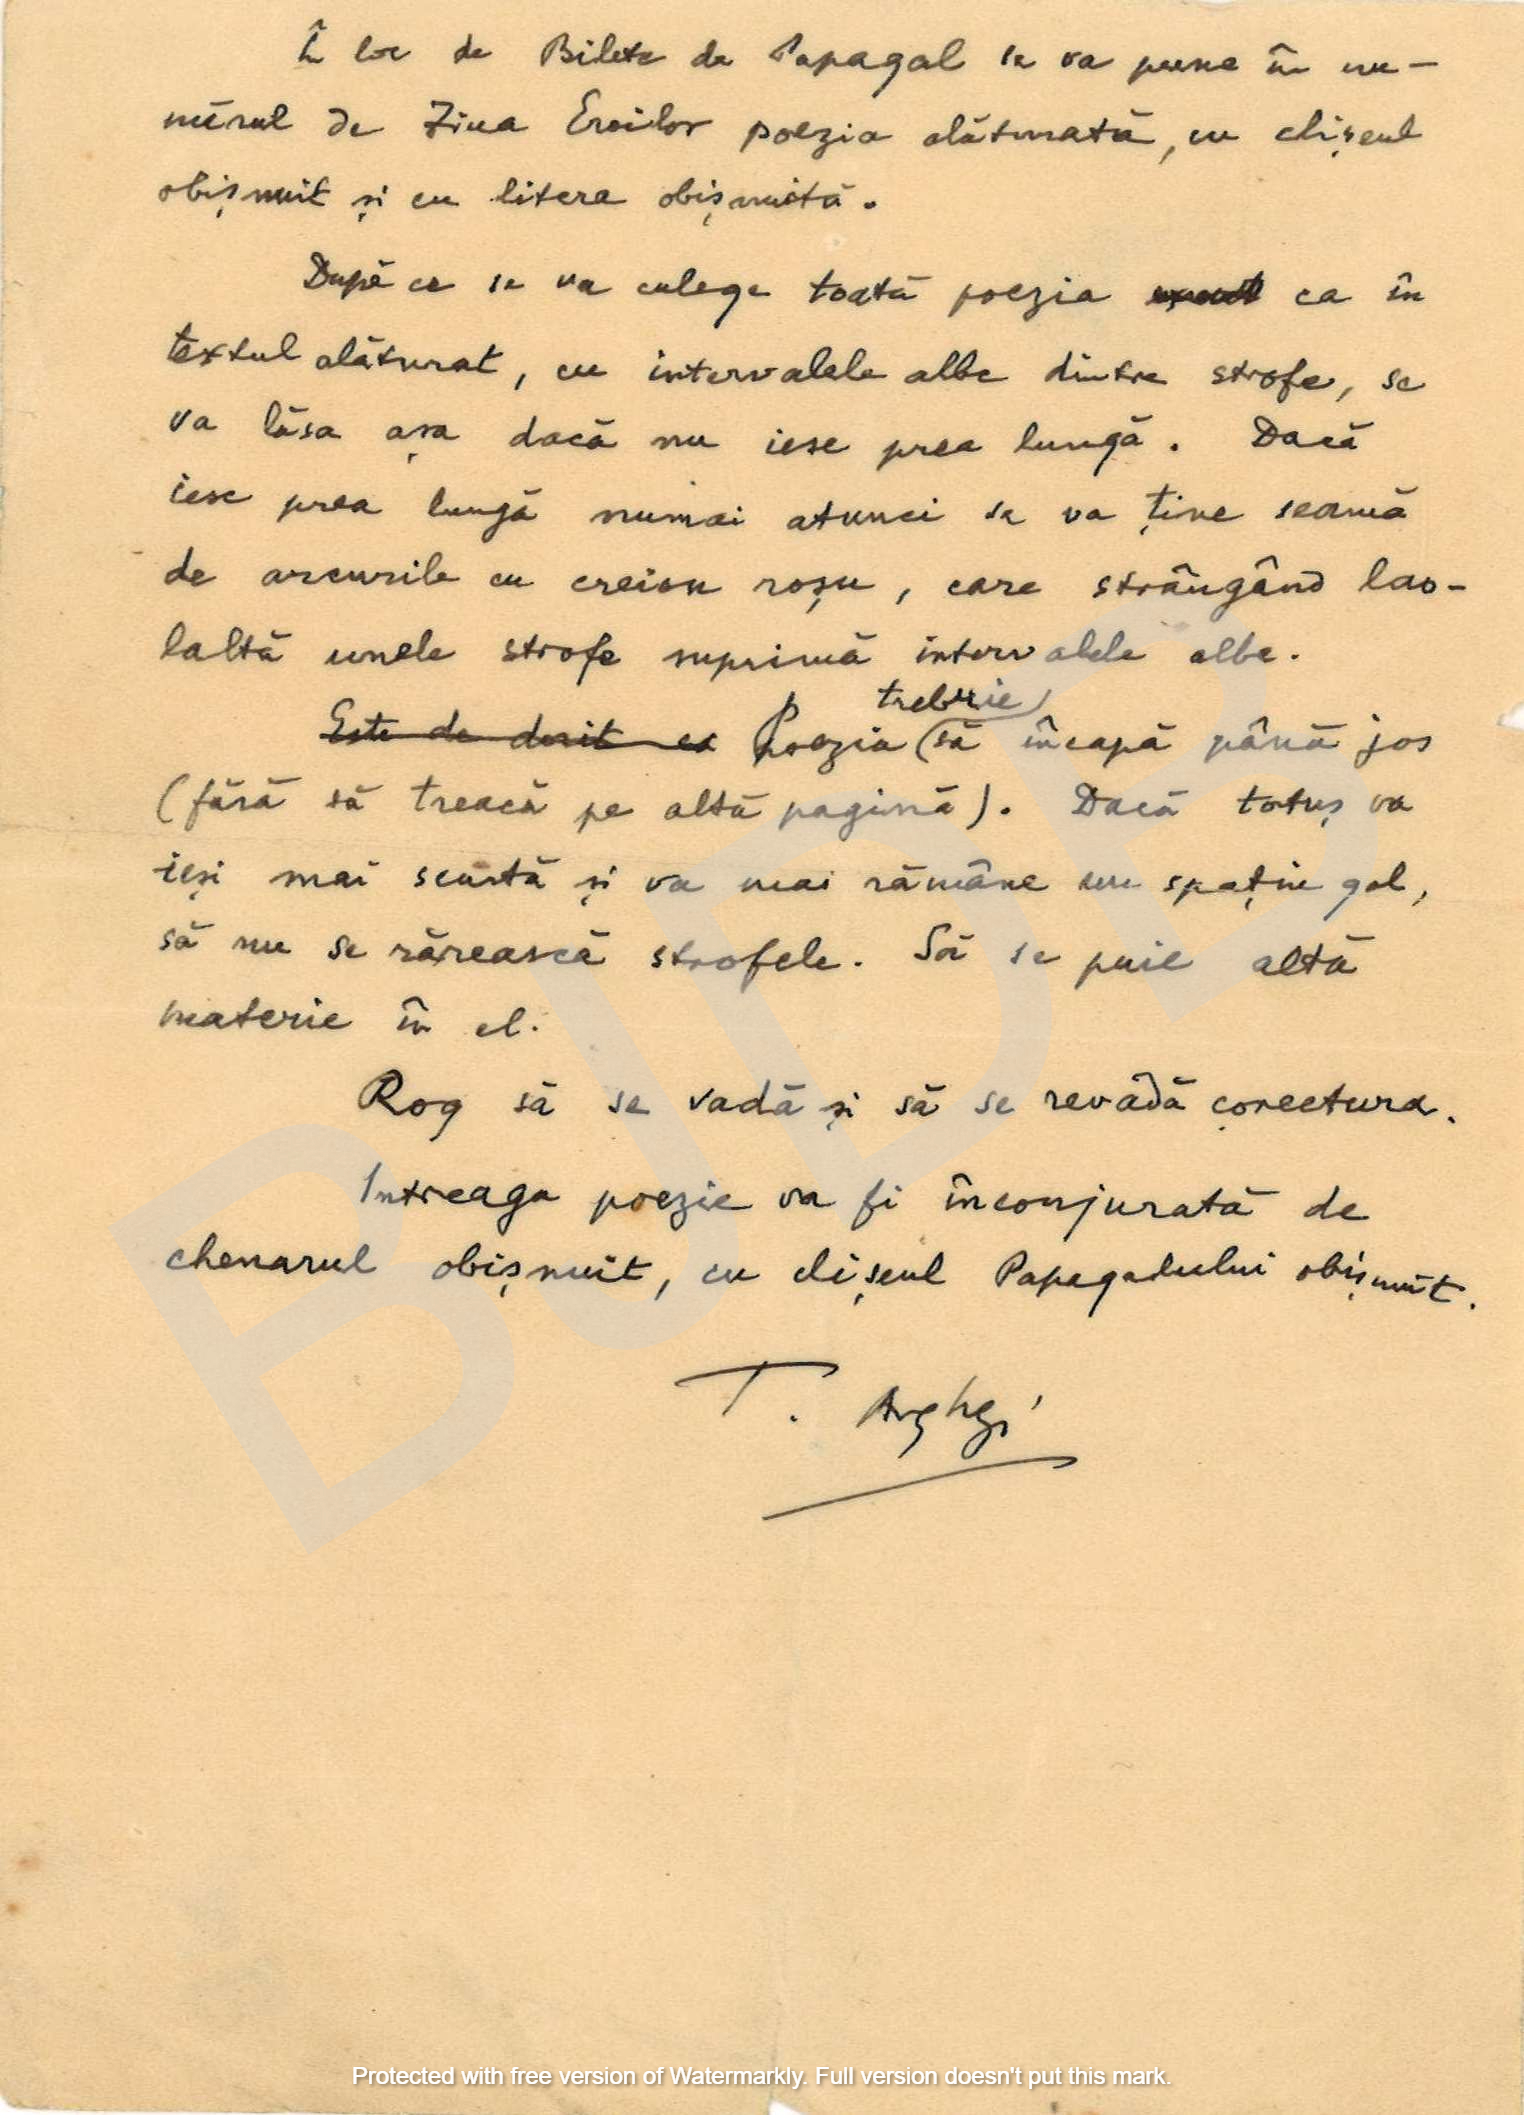 În loc de Bilete de Papagal se va pune în nu-
mărul de Ziua Eroilor poezia alăturată, cu clișeul
obișnuit și cu litera obișnuită.
După ce se va culege toată poezia ca în
textul alăturat, cu intervalele albe dintre strofe, se
va lăsa așa dacă nu iese prea lungă. Dacă
iese prea lungă numai atunci se va ține seamă
de arcurile cu creion roșu, care strângând lao-
laltă unele strofe suprimă intervalele albe.
trebuie
Este de dorit ca Poezia (să încapă până jos
(fără să treacă pe altă pagină). Dacă totuș va
ieși mai scurtă și va mai rămâne un spațiu gol,
să nu se rărească strofele. Să se puie altă
materie în el.
Rog să se vadă și să se revâdă corectura.
Intreaga poezie va fi înconjurată de
chenarul obișnuit, cu clișeul Papagalului obișnuit.
T. Arghezi
BJDB
Protected with free version of Watermarkly. Full version doesn't put this mark.